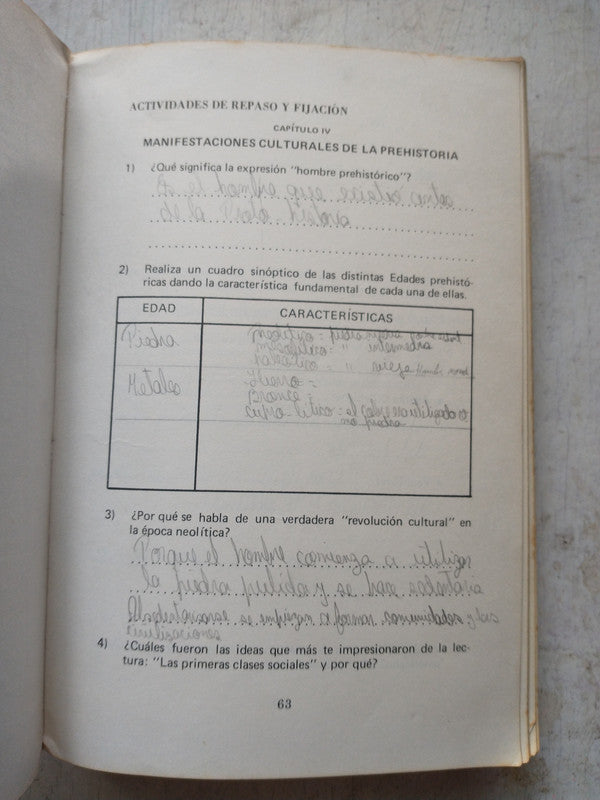 ACTIVIDADES DE REPASO Y FIJACIÓN
CAPÍTULO IV
MANIFESTACIONES CULTURALES DE LA PREHISTORIA
1) ¿Qué significa la expresión "hombre prehistórico"?
Es el hombre que existió antes
de la historia
2) Realiza un cuadro sinóptico de las distintas Edades prehistó-
ricas dando la característica fundamental de cada una de ellas.
EDAD
CARACTERÍSTICAS
Piedra
neolítico = piedra nueva
mesolítico = " intermedia
paleolítico = " vieja
Metales
Hierro =
Bronce =
cupro-lítico = el cobre utilizado
piedra
3) ¿Por qué se habla de una verdadera "revolución cultural" en
la época neolítica?
Porque el hombre comienza a utilizar
la piedra pulida y se hace sedentario
Al sedentarizarse se empiezan a formar comunidades y
civilizaciones
4) ¿Cuáles fueron las ideas que más te impresionaron de la lec-
tura: "Las primeras clases sociales" y por qué?
63